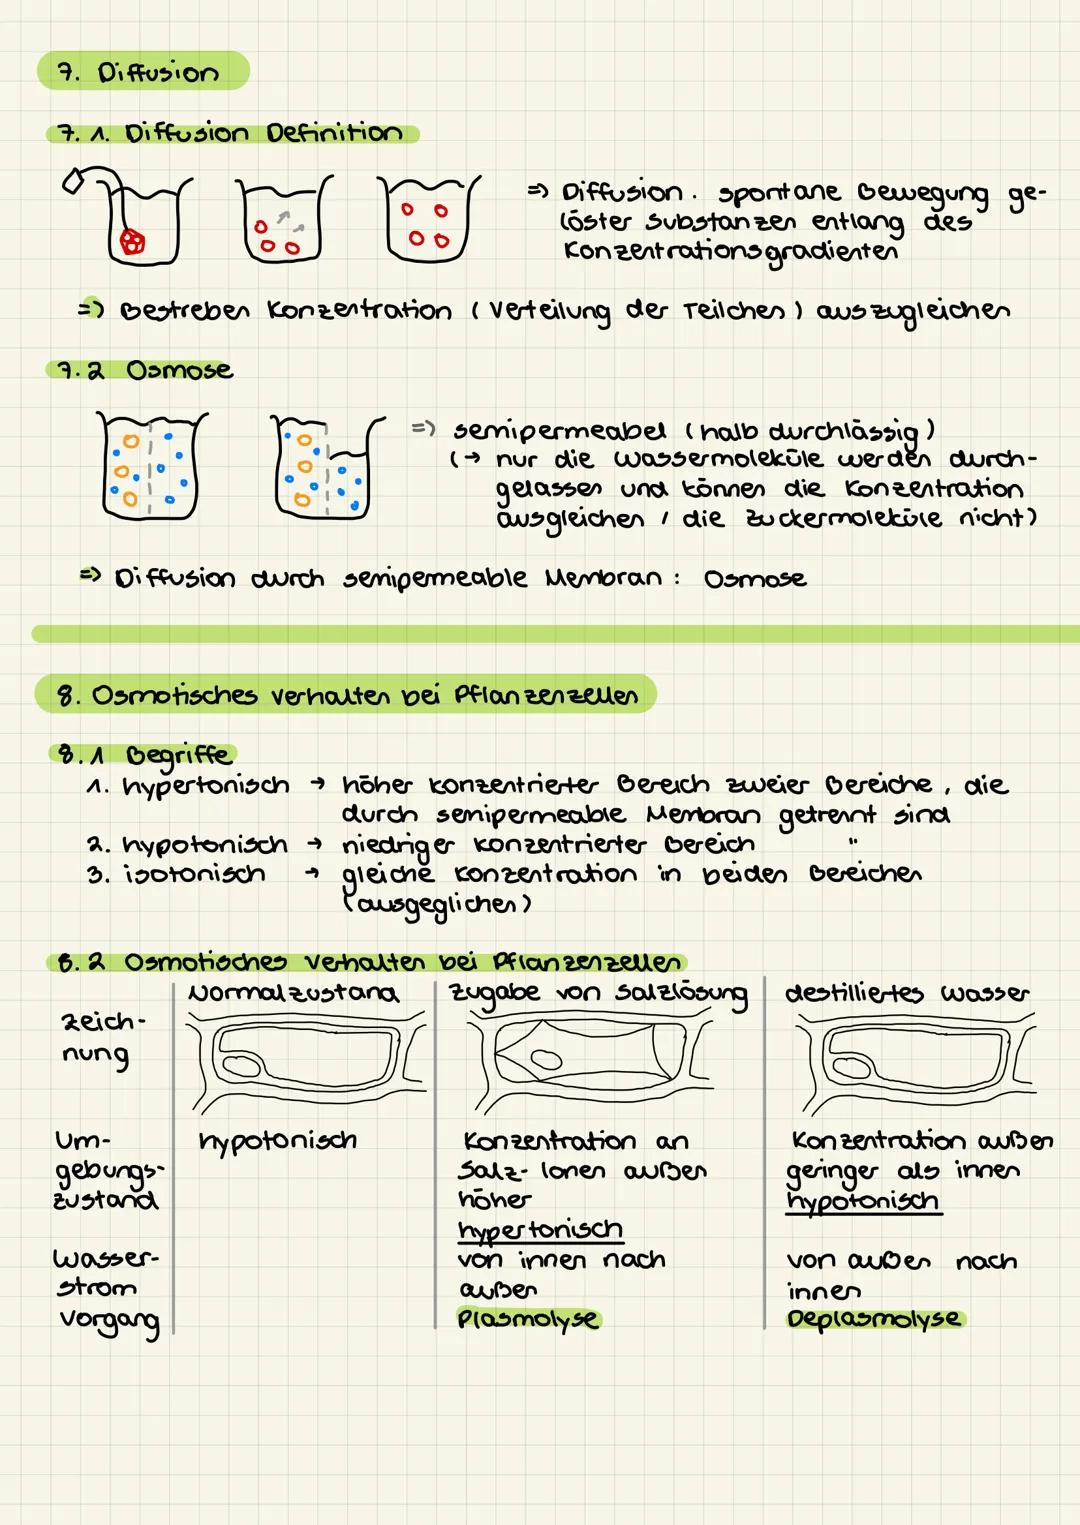 7. Diffusion
7.1. Diffusion Definition
=> Diffusion. spontane Bewegung ge-
löster Substanzen entlang des
Konzentrationsgradienten
=> Bestreben Konzentration (Verteilung der Teilchen) auszugleichen
7.2 Osmose
=> semipermeabel (halb durchlässig)
(→ nur die Wassermoleküle werden durch-
gelassen und können die Konzentration
ausgleichen, die Zuckermoleküle nicht)
=> Diffusion durch semipermeable Membran: Osmose
8. Osmotisches Verhalten bei Pflanzenzellen
8.1 Begriffe
1. hypertonisch → höher konzentrierter Bereich zweier Bereiche, die
durch semipermeable Membran getrennt sind
2. hypotonisch → niedriger konzentrierter Bereich "
3. isotonisch → gleiche Konzentration in beiden Bereichen
(ausgeglichen)
8.2 Osmotisches Verhalten bei Pflanzenzellen
Normalzustand Zugabe von Salzlösung destilliertes Wasser
Zeich-
nung
Um-
gebungs-
zustand
hypotonisch
Konzentration an
Salz-Ionen außen
höher
hypertonisch
Konzentration außen
geringer als innen
hypotonisch
Wasser-
strom
von innen nach
außen
von außen nach
innen
Vorgang Plasmolyse Deplasmolyse